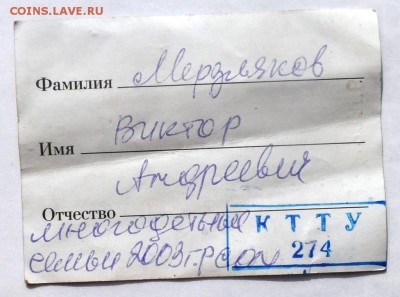 COINS.LAVE.RU
Фамилия Мерзляков
Имя Виктор
Отчество Андреевич
многодетные КТТУ
семьи 2003г.р 274